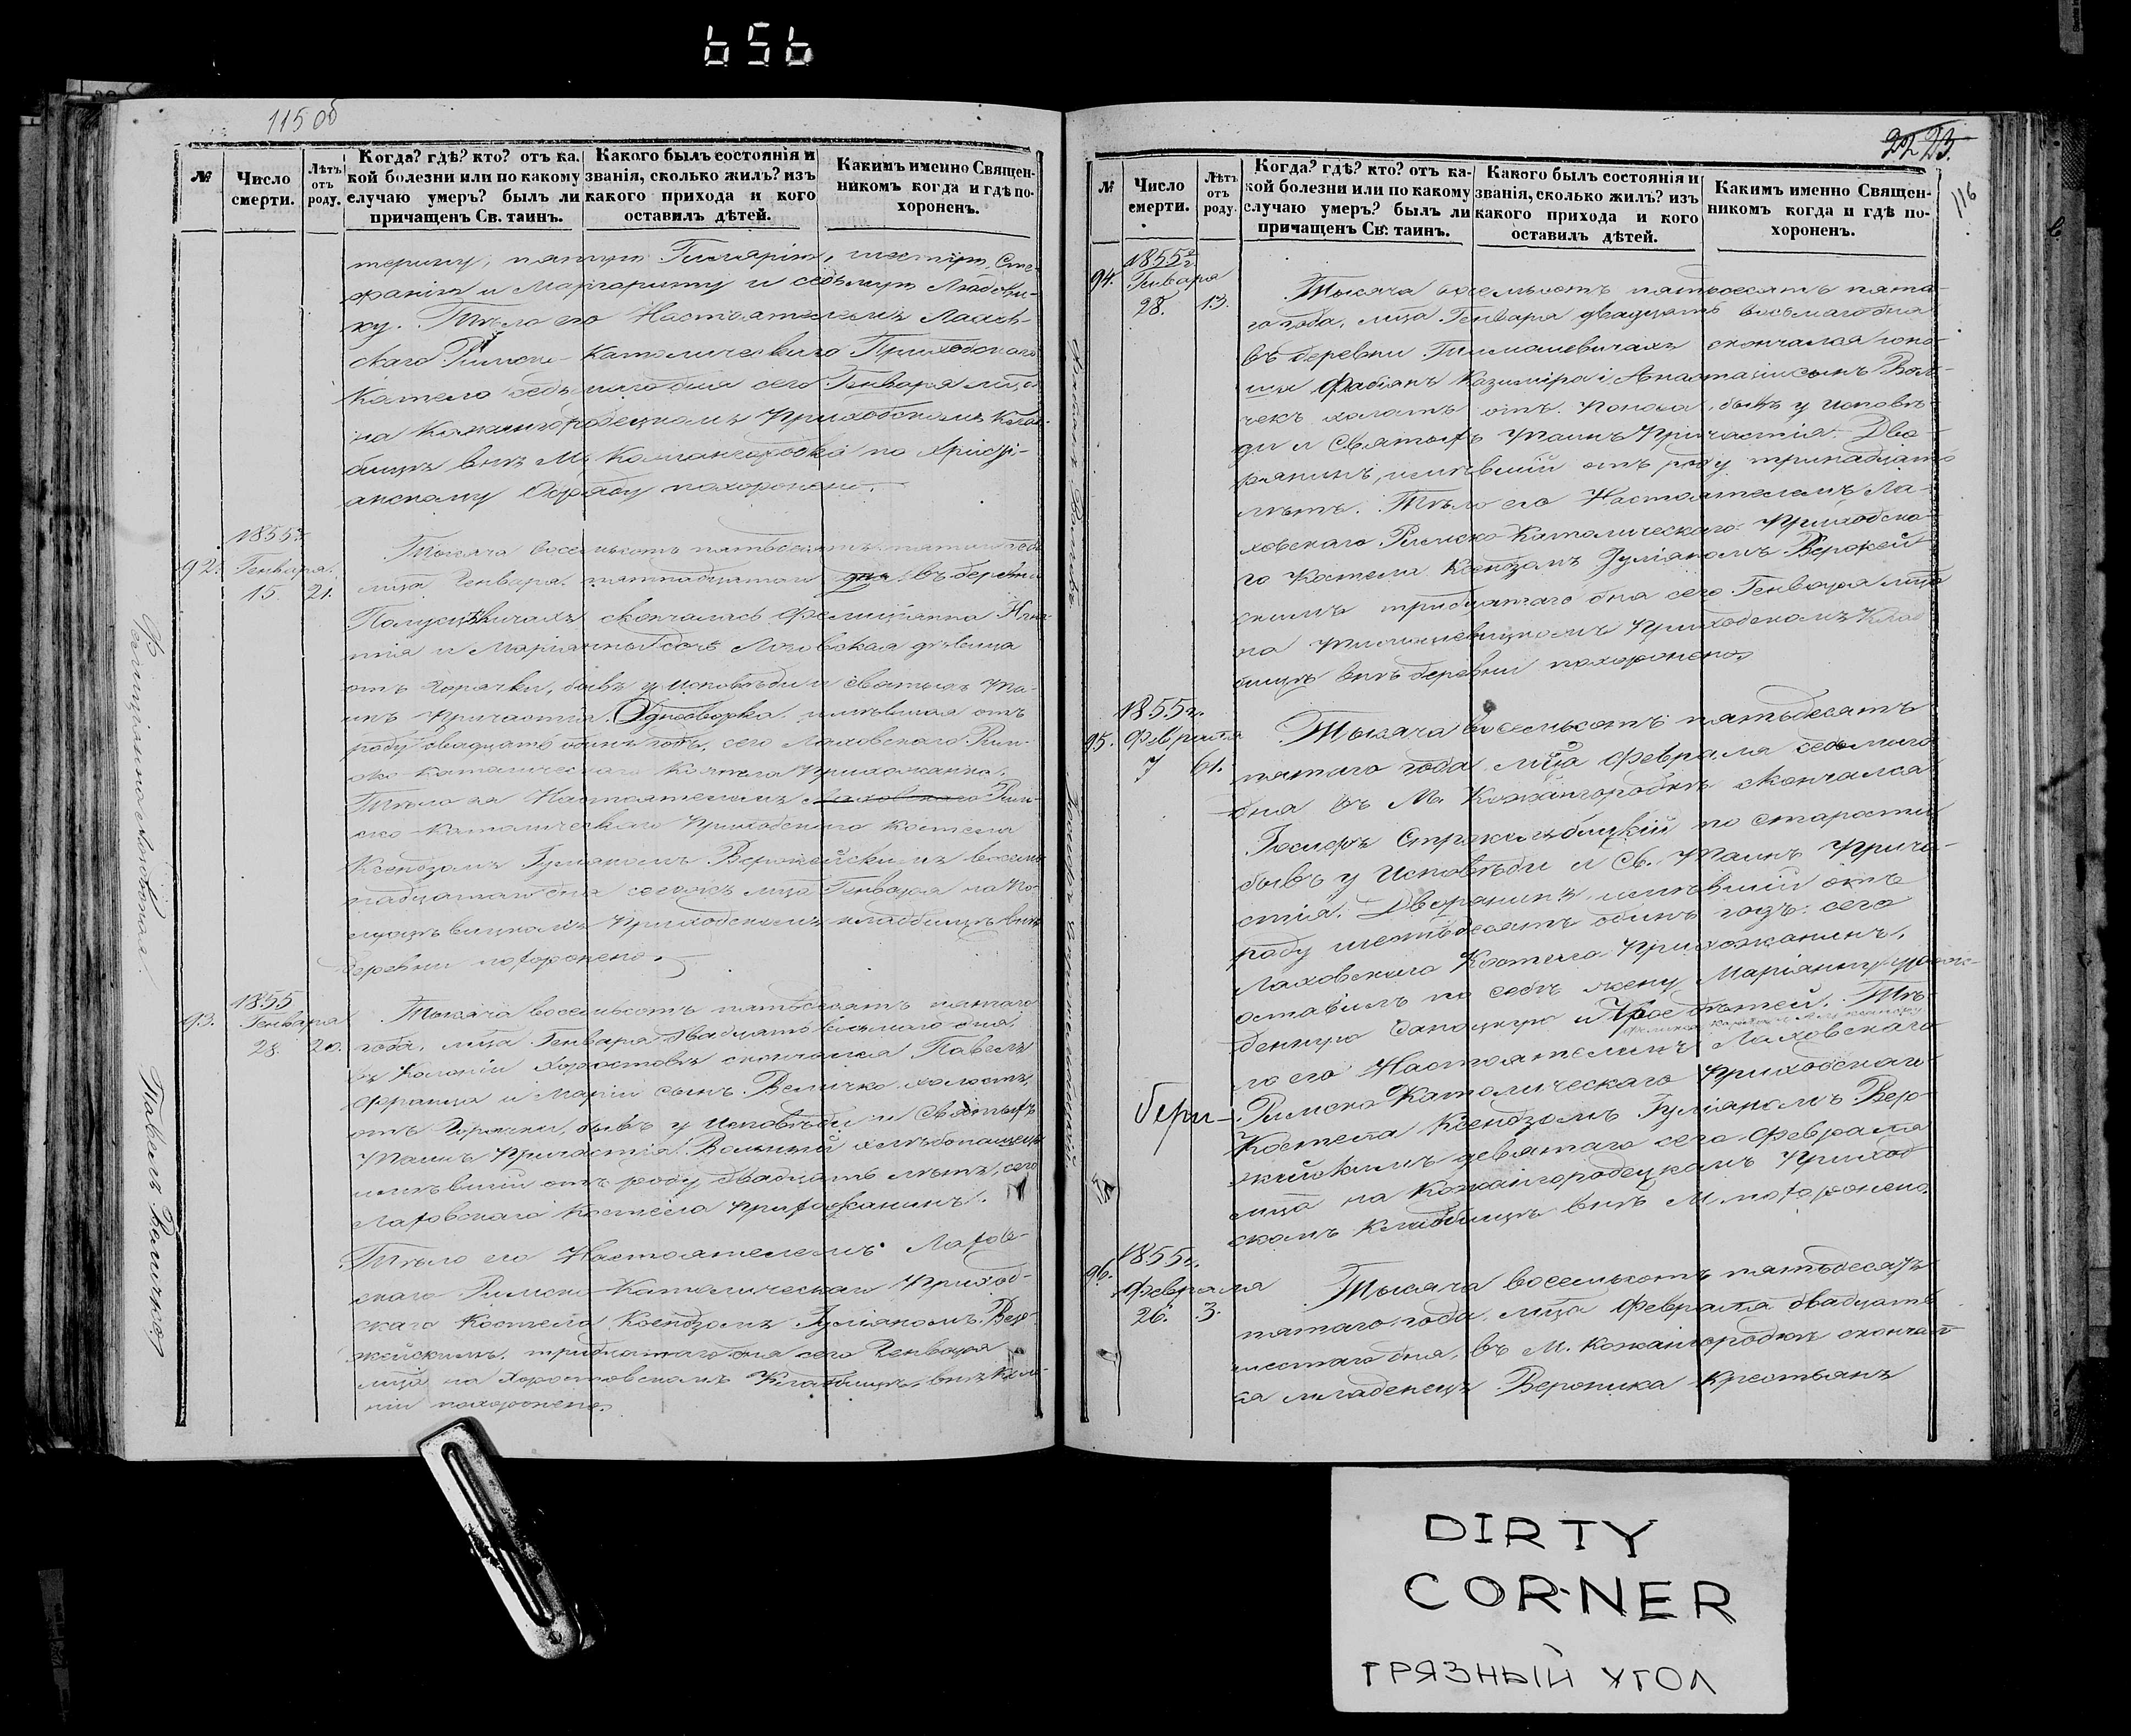 656
115 об
№
Число смерти.
Лѣтъ отъ роду.
Когда? гдѣ? кто? отъ ка-
кой болезни или по какому
случаю умеръ? былъ ли
причащенъ Св. таинъ.
Какого былъ состоянія и
званія, сколько жилъ? изъ
какого прихода и кого
оставилъ дѣтей.
Какимъ именно Священ-
никомъ когда и гдѣ по-
хороненъ.
терину, пятую Гилярію, шестую Сте-
фанію и Маргариту и седьмую Людови-
ку. Тѣло его Настоятелемъ Лахов-
скаго Римско-Католическаго Приходскаго
Костела седьмаго дня сего Генваря мца
на Кожангородецкомъ Приходскомъ Клад-
бищѣ внѣ М. Кожангородка по Христі-
анскому Обряду похоронено.
1855 г.
92. Генваря
15. 21.
Тысяча восемьсотъ пятьдесятъ пятаго года
мца Генваря пятнадцатаго дня въ деревни
скончалась Фелиціанна Игна-
тія и Маріанны дочь дѣвица
отъ горячки, бывъ у Исповѣди и святыхъ Та-
инъ Причастія. Однодворка, имѣвшая отъ
роду двадцать одинъ годъ, сего Лаховскаго Рим-
ско-Католическаго Костела Прихожанка.
Тѣло ея Настоятелемъ Лаховскаго Рим-
ско-Католическаго Приходскаго Костела
Ксендзомъ Гуліаномъ Вержейскимъ восем-
надцатаго дня сегожъ мца Генваря на По-
Приходскомъ кладбищѣ внѣ
деревни похоронено.
1855
93. Генваря
28. 20.
Тысяча восемьсотъ пятьдесятъ пятаго
года, мца Генваря двадцать восьмаго дня,
въ Колоніи Хоростовъ скончался Павелъ
Франца и Маріи сынъ Величко холостъ,
отъ Горячки, бывъ у Исповѣди и Святыхъ
Таинъ Причастія. Вольный хлѣбопашецъ
имѣвшій отъ роду двадцать лѣтъ, сего
Лаховскаго Костела Прихожанинъ.
Тѣло его Настоятелемъ Лахов-
скаго Римско-Католическаго Приход-
скаго Костела Ксендзомъ Гуліаномъ Вер-
жейскимъ, тридцатаго дня сего Генваря
мца на Хоростовскомъ Кладбищѣ, внѣ Коло-
ніи похоронено.
Павелъ Величко
22 23.
116
№
Число смерти.
Лѣтъ отъ роду.
Когда? гдѣ? кто? отъ ка-
кой болезни или по какому
случаю умеръ? былъ ли
причащенъ Св. таинъ.
Какого былъ состоянія и
званія, сколько жилъ? изъ
какого прихода и кого
оставилъ дѣтей.
Какимъ именно Священ-
никомъ когда и гдѣ по-
хороненъ.
1855 г.
94. Генваря
28. 13.
Тысяча восемьсотъ пятьдесятъ пята-
го года, мца Генваря двадцать восьмаго дня
въ деревни скончался юно-
ша Фабіанъ Казиміра і Анастасіи сынъ
холостъ отъ поноса, бывъ у исповѣ-
ди и Святыхъ Таинъ Причастія. Дво-
рянинъ, имѣвшій отъ роду тринадцать
лѣтъ. Тѣло его Настоятелемъ Ла-
ховскаго Римско-Католическаго Приходска-
го Костела Ксендзомъ Гуліаномъ Вержей-
скимъ тридцатаго дня сего Генваря мца
на Приходскомъ Клад-
бищѣ внѣ деревни похоронено.
1855 г.
95. Февраля
7 61.
Тысяча восемьсотъ пятьдесятъ
пятаго года мца Февраля седьмаго
дня въ М. Кожангородкѣ скончался
Іосифъ по старости
бывъ у Исповѣди и Св. Таинъ Прича-
стія. Дворянинъ имѣвшій отъ
роду шестьдесятъ одинъ годъ: сего
Лаховскаго Костела Прихожанинъ,
оставилъ по себѣ жену Маріянну урож-
денную и Трое дѣтей. Тѣ-
ло его Настоятелемъ Лаховскаго
Римско Католическаго Приходскаго
Костела Ксендзомъ Гуліаномъ Вер-
жейскимъ девятаго сего Февраля
мца на Кожангородецкомъ Приход-
скомъ Кладбищѣ внѣ М. похоронено.
1855 г.
96. Февраля
26. 3.
Тысяча восемьсотъ пятьдесятъ
пятаго года, мца Февраля двадцать
шестаго дня, въ М. Кожангородкѣ сконча-
ся младенецъ Вероника Крестьянъ
DIRTY
CORNER
ГРЯЗНЫЙ УГОЛ